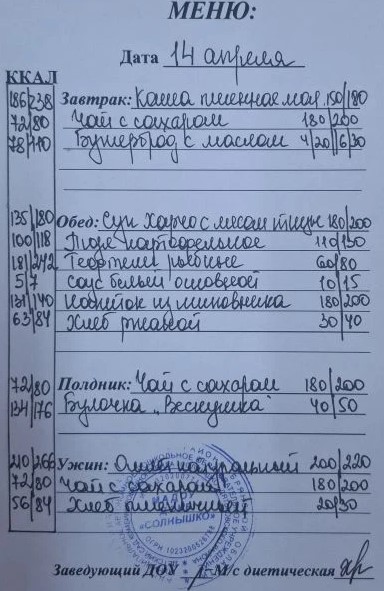 МЕНЮ:
Дата 14 апреля
ККАЛ
186/238 Завтрак: Каша пшенная мол. 150/180
72/80 Чай с сахаром 180/200
78/110 Бутерброд с маслом 4/20/6/30
135/180 Обед: Суп Харчо с мясом птицы 180/200
100/118 Пюре картофельное 110/130
181/242 Тефтели рыбные 60/80
5/7 Соус белый основной 10/15
131/140 Напиток из шиповника 180/200
63/84 Хлеб ржаной 30/40
72/80 Полдник: Чай с сахаром 180/200
134/176 Булочка „Веснушка" 40/50
210/266 Ужин: Омлет натуральный 200/220
72/80 Чай с сахаром 180/200
56/84 Хлеб пшеничный 20/30
«СОЛНЫШКО»
Заведующий ДОУ М/с диетическая